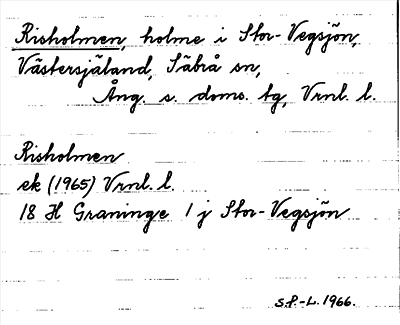 Risholmen, holme i Stor-Vegsjön,
Västersjäland, Säbrå sn,
Ång. s. doms. tg, Vrnl. l.
Risholmen
ek (1965) Vrnl. l.
18 H Graninge 1 j Stor-Vegsjön
S.P.-L. 1966.